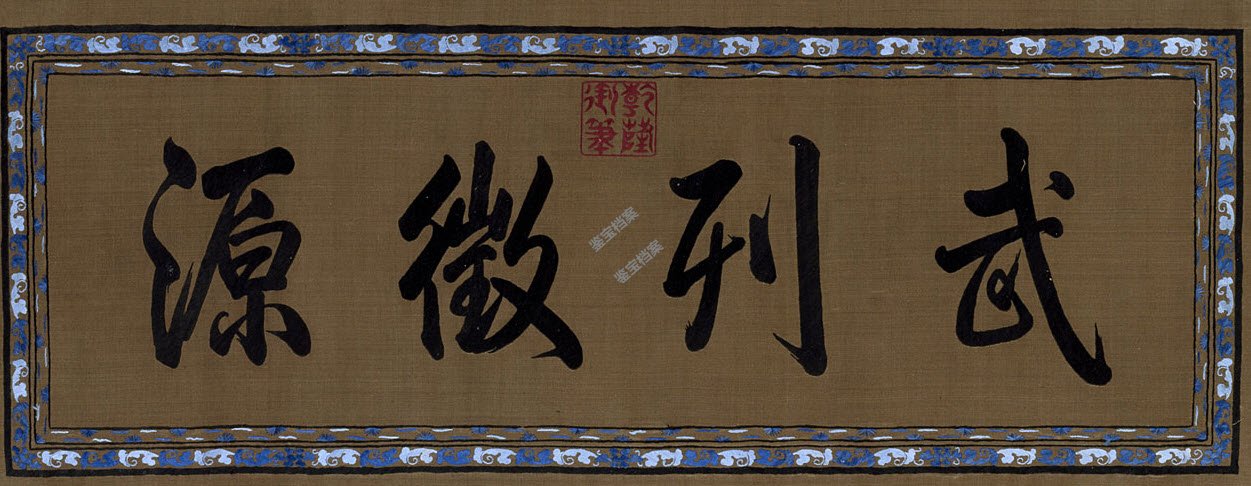 武列徵源
乾隆御筆
鉴宝档案
鉴宝档案